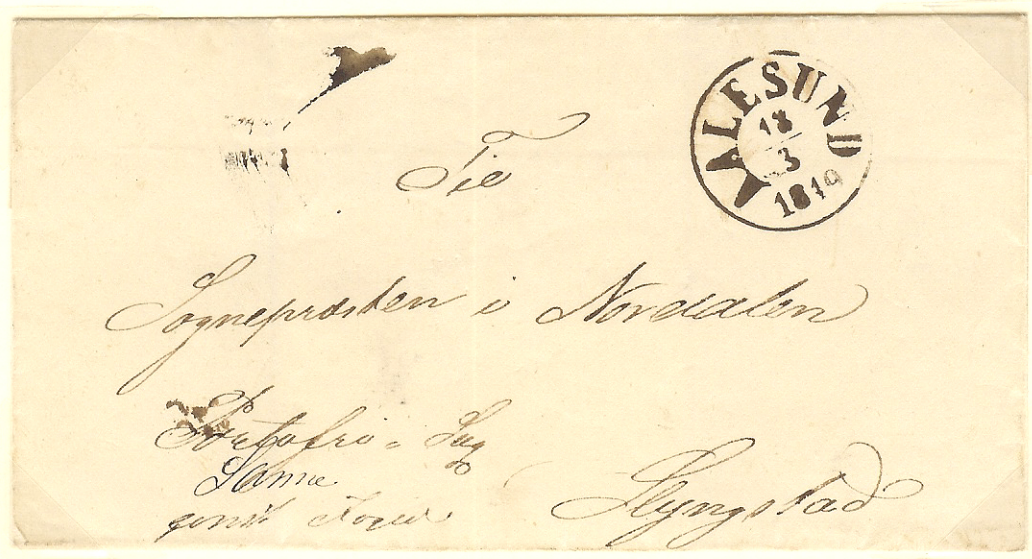 AALESUND
18
3
1849
Til
Sognepræsten i Nordalen
Portofrie Sag
Slyngstad